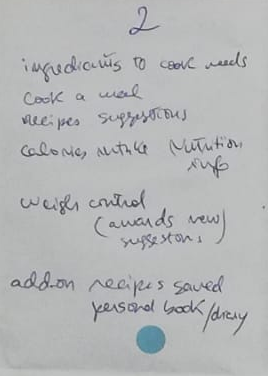 2
ingredients to cook needs
cook a meal
recipes suggestions
calories intake Nutrition
info
weigh control
(awards new)
suggestions
add-on recipes saved
personal book/diary